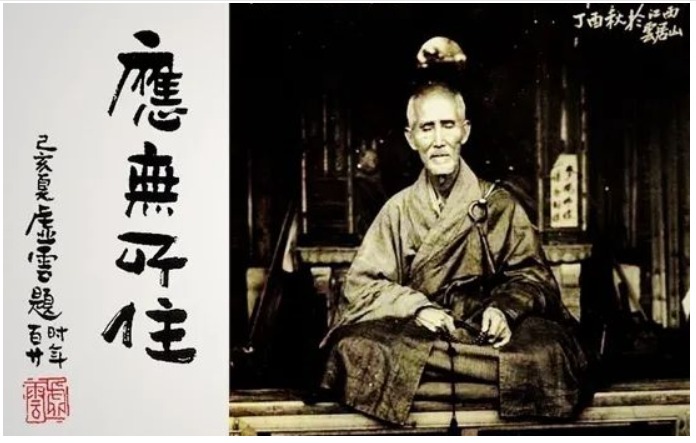 應無所住
己亥夏虛雲題
时年
百廿
虛雲
丁酉秋於江西
雲居山